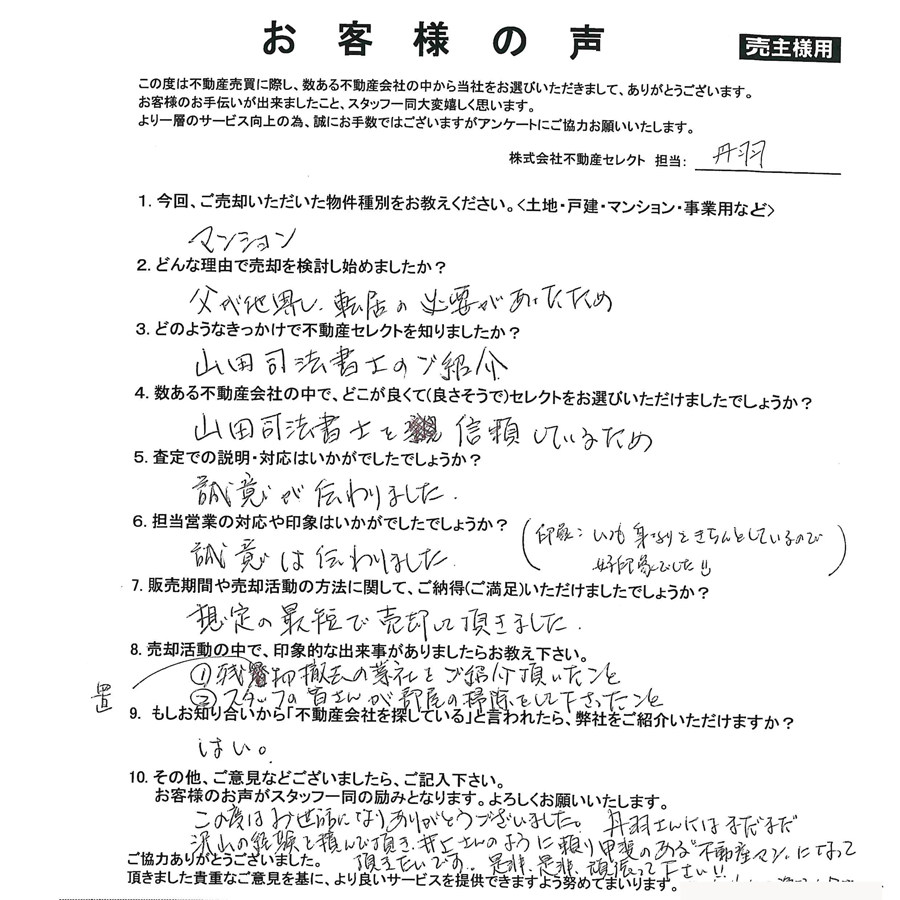 お客様の声
売主様用
この度は不動産売買に際し、数ある不動産会社の中から当社をお選びいただきまして、ありがとうございます。
お客様のお手伝いが出来ましたこと、スタッフ一同大変嬉しく思います。
より一層のサービス向上の為、誠にお手数ではございますがアンケートにご協力お願いいたします。
株式会社不動産セレクト 担当: 丹羽
1. 今回、ご売却いただいた物件種別をお教えください。<土地・戸建・マンション・事業用など>
マンション
2. どんな理由で売却を検討し始めましたか?
父が他界し、転居の必要があったため
3. どのようなきっかけで不動産セレクトを知りましたか?
山田司法書士のご紹介
4. 数ある不動産会社の中で、どこが良くて(良さそうで)セレクトをお選びいただけましたでしょうか?
山田司法書士を信頼しているため
5. 査定での説明・対応はいかがでしたでしょうか?
誠意が伝わりました.
6. 担当営業の対応や印象はいかがでしたでしょうか?
(印象: いつも身なりをきちんとしているので
好印象でした!!)
誠意は伝わりました.
7. 販売期間や売却活動の方法に関して、ご納得(ご満足)いただけましたでしょうか?
想定の最短で売却して頂きました.
8. 売却活動の中で、印象的な出来事がありましたらお教え下さい。
①残置物撤去の業社をご紹介頂いたこと
②スタッフの皆さんが部屋の掃除をして下さったこと
9. もしお知り合いから「不動産会社を探している」と言われたら、弊社をご紹介いただけますか?
はい。
10. その他、ご意見などございましたら、ご記入下さい。
お客様のお声がスタッフ一同の励みとなります。よろしくお願いいたします。
この度はお世話になりありがとうございました。丹羽さんにはまだまだ
沢山の経験を積んで頂き、井上さんのように頼り甲斐のある"不動産マン"になって
頂きたいです。是非、是非、頑張って下さい!!
ご協力ありがとうございました。
頂きました貴重なご意見を基に、より良いサービスを提供できますよう努めてまいります。